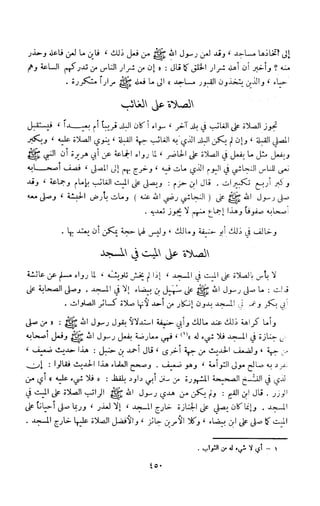 إلى اتخاذها مساجد ، وقد لعن رسول الله ﷺ من فعل ذلك ، فأين ما لعن فاعله وحذر
منه ؟ وأخبر أن أهله شرار الخلق كما قال : « إن من شرار الناس من تدركهم الساعة وهم
أحياء ، والذين يتخذون القبور مساجد » إلى ما فعله ﷺ مراراً متكررة .
الصلاة على الغائب
تجوز الصلاة على الغائب في بلد آخر ، سواء أكان البلد قريباً أم بعيداً ، فيستقبل
المصلي القبلة ، وإن لم يكن البلد الذي به الغائب جهة القبلة ، ينوي الصلاة عليه ، ويكبر
ويفعل مثل ما يفعل في الصلاة على الحاضر ، لما رواه الجماعة عن أبي هريرة أن النبي ﷺ
نعى للناس النجاشي في اليوم الذي مات فيه ، وخرج بهم إلى المصلى ، فصف أصحابه
وكبر أربع تكبيرات . قال ابن حزم : ويصلى على الميت الغائب بإمام وجماعة ، وقد
صلى رسول الله ﷺ على ( النجاشي رضي الله عنه ) ومات بأرض الحبشة ، وصلى معه
أصحابه صفوفاً وهذا إجماع منهم لا يجوز تعديه .
وخالف في ذلك أبو حنيفة ومالك ، وليس لهما حجة يمكن أن يعتد بها .
الصلاة على الميت في المسجد
لا بأس بالصلاة على الميت في المسجد ، إذا لم يخش تلويثه ، لما رواه مسلم عن عائشة
قالت : ما صلى رسول الله ﷺ على سهيل بن بيضاء إلا في المسجد . وصلى الصحابة على
أبي بكر وعمر في المسجد بدون إنكار من أحد لأنها صلاة كسائر الصلوات .
وأما كراهة ذلك عند مالك وأبي حنيفة استدلالاً بقول رسول الله ﷺ : « من صلى
على جنازة في المسجد فلا شيء له »(١) ، فهي معارضة بفعل رسول الله ﷺ وفعل أصحابه
من جهة ، ولضعف الحديث من جهة أخرى ، قال أحمد بن حنبل : هذا حديث ضعيف ،
تفرد به صالح مولى التوأمة ، وهو ضعيف . وصحح العلماء هذا الحديث فقالوا : إن
الذي في النسخ الصحيحة المشهورة من سنن أبي داود بلفظ : « فلا شيء عليه » أي من
الوزر . قال ابن القيم : ولم يكن من هدي رسول الله ﷺ الراتب الصلاة على الميت في
المسجد . وإنما كان يصلي على الجنازة خارج المسجد ، إلا لعذر ، وربما صلى أحياناً على
الميت كما صلى على ابن بيضاء ، وكلا الأمرين جائز ، والأفضل الصلاة عليها خارج المسجد .
١ - أي لا شيء له من الثواب .
٤٥٠